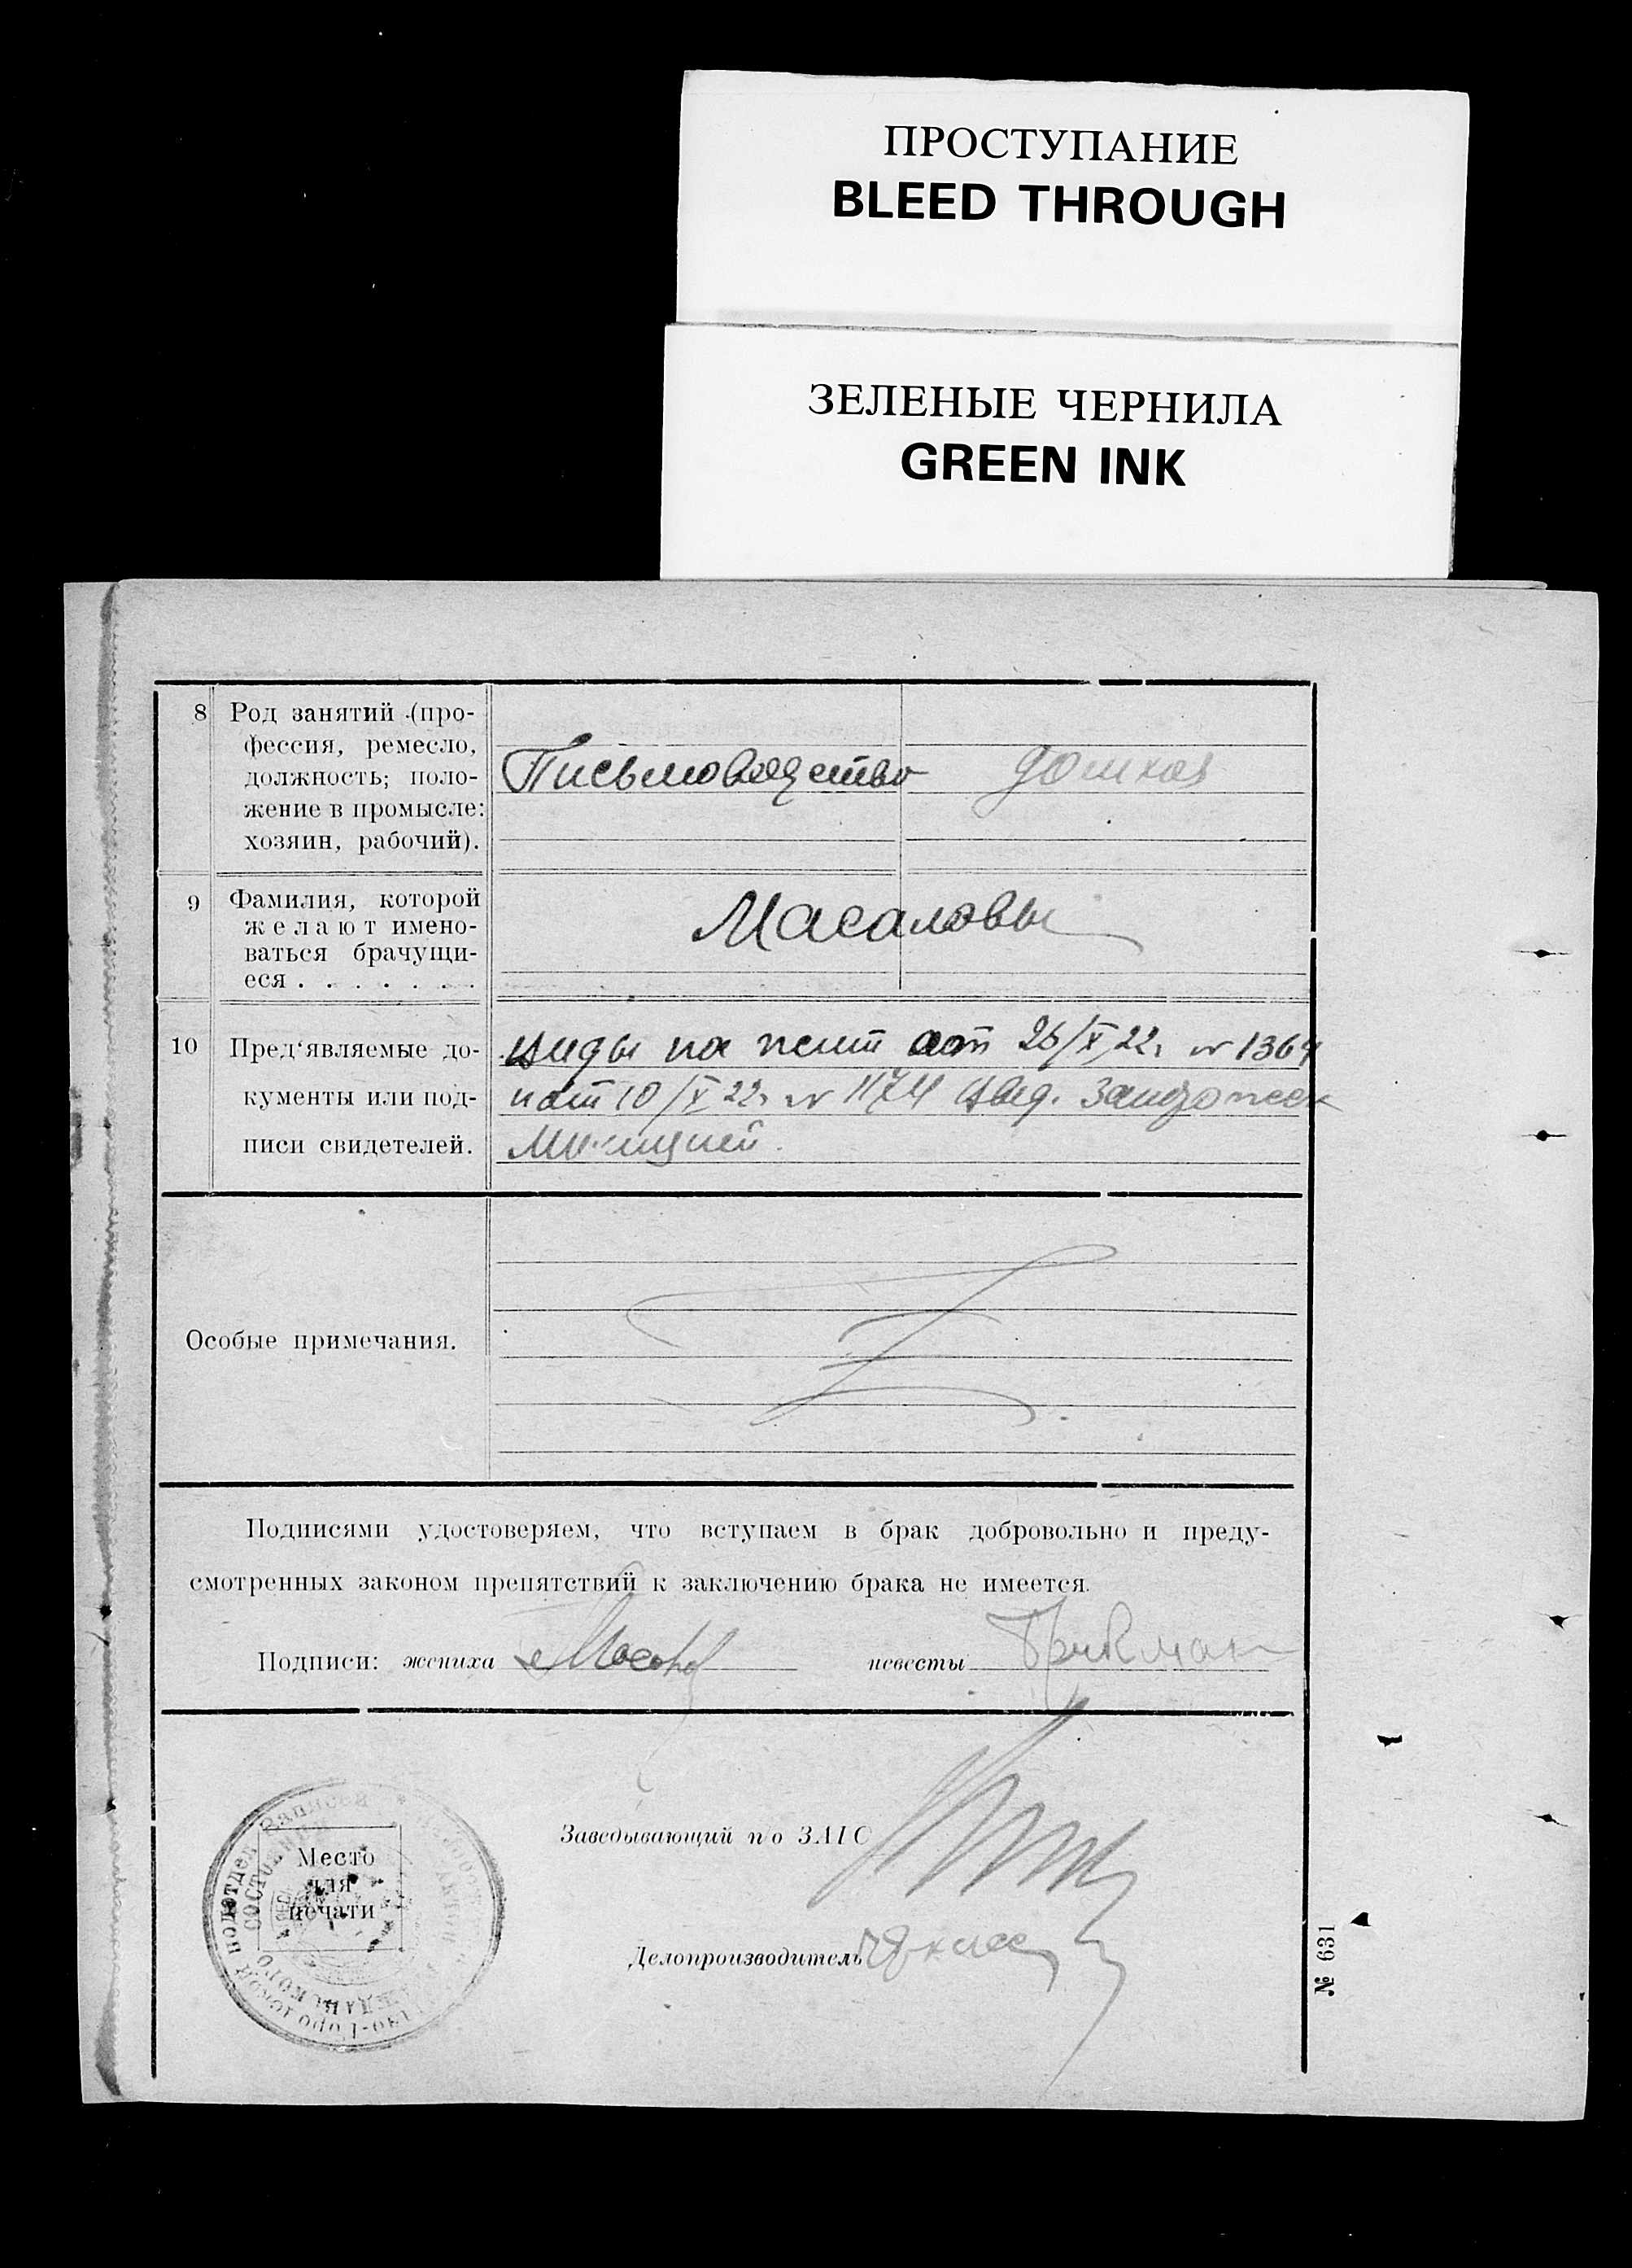 ПРОСТУПАНИЕ
BLEED THROUGH
ЗЕЛЕНЫЕ ЧЕРНИЛА
GREEN INK
8 Род занятий (про-
фессия, ремесло,
должность; поло-
жение в промысле:
хозяин, рабочий).
Письмоводство
9 Фамилия, которой
желают имено-
ваться брачущи-
еся . . . . . . .
Масаловы
10 Пред'являемые до-
кументы или под-
писи свидетелей.
виды на жит от 26/X 22. № 1364
и от 10/X 22. № 1174 выд.
Милицией.
Особые примечания.
Подписями удостоверяем, что вступаем в брак добровольно и преду-
смотренных законом препятствий к заключению брака не имеется.
Подписи: жениха невесты
Место
для
печати
Заведывающий п/о ЗАГС
Делопроизводитель
№ 631